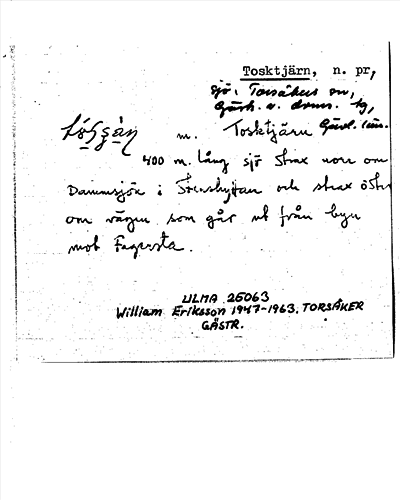 Tosktjärn, n. pr,
sjö i Torsåkers sn,
Gästr. v. doms. tg,
Gävl. län.
m. Tosktjärn
400 m. lång sjö strax norr om
Dammsjön i Stenshyttan och strax öster
om vägen som går ut från byn
mot Fagersta.
ULMA 25063
William Eriksson 1947-1963, TORSÅKER
GÄSTR.